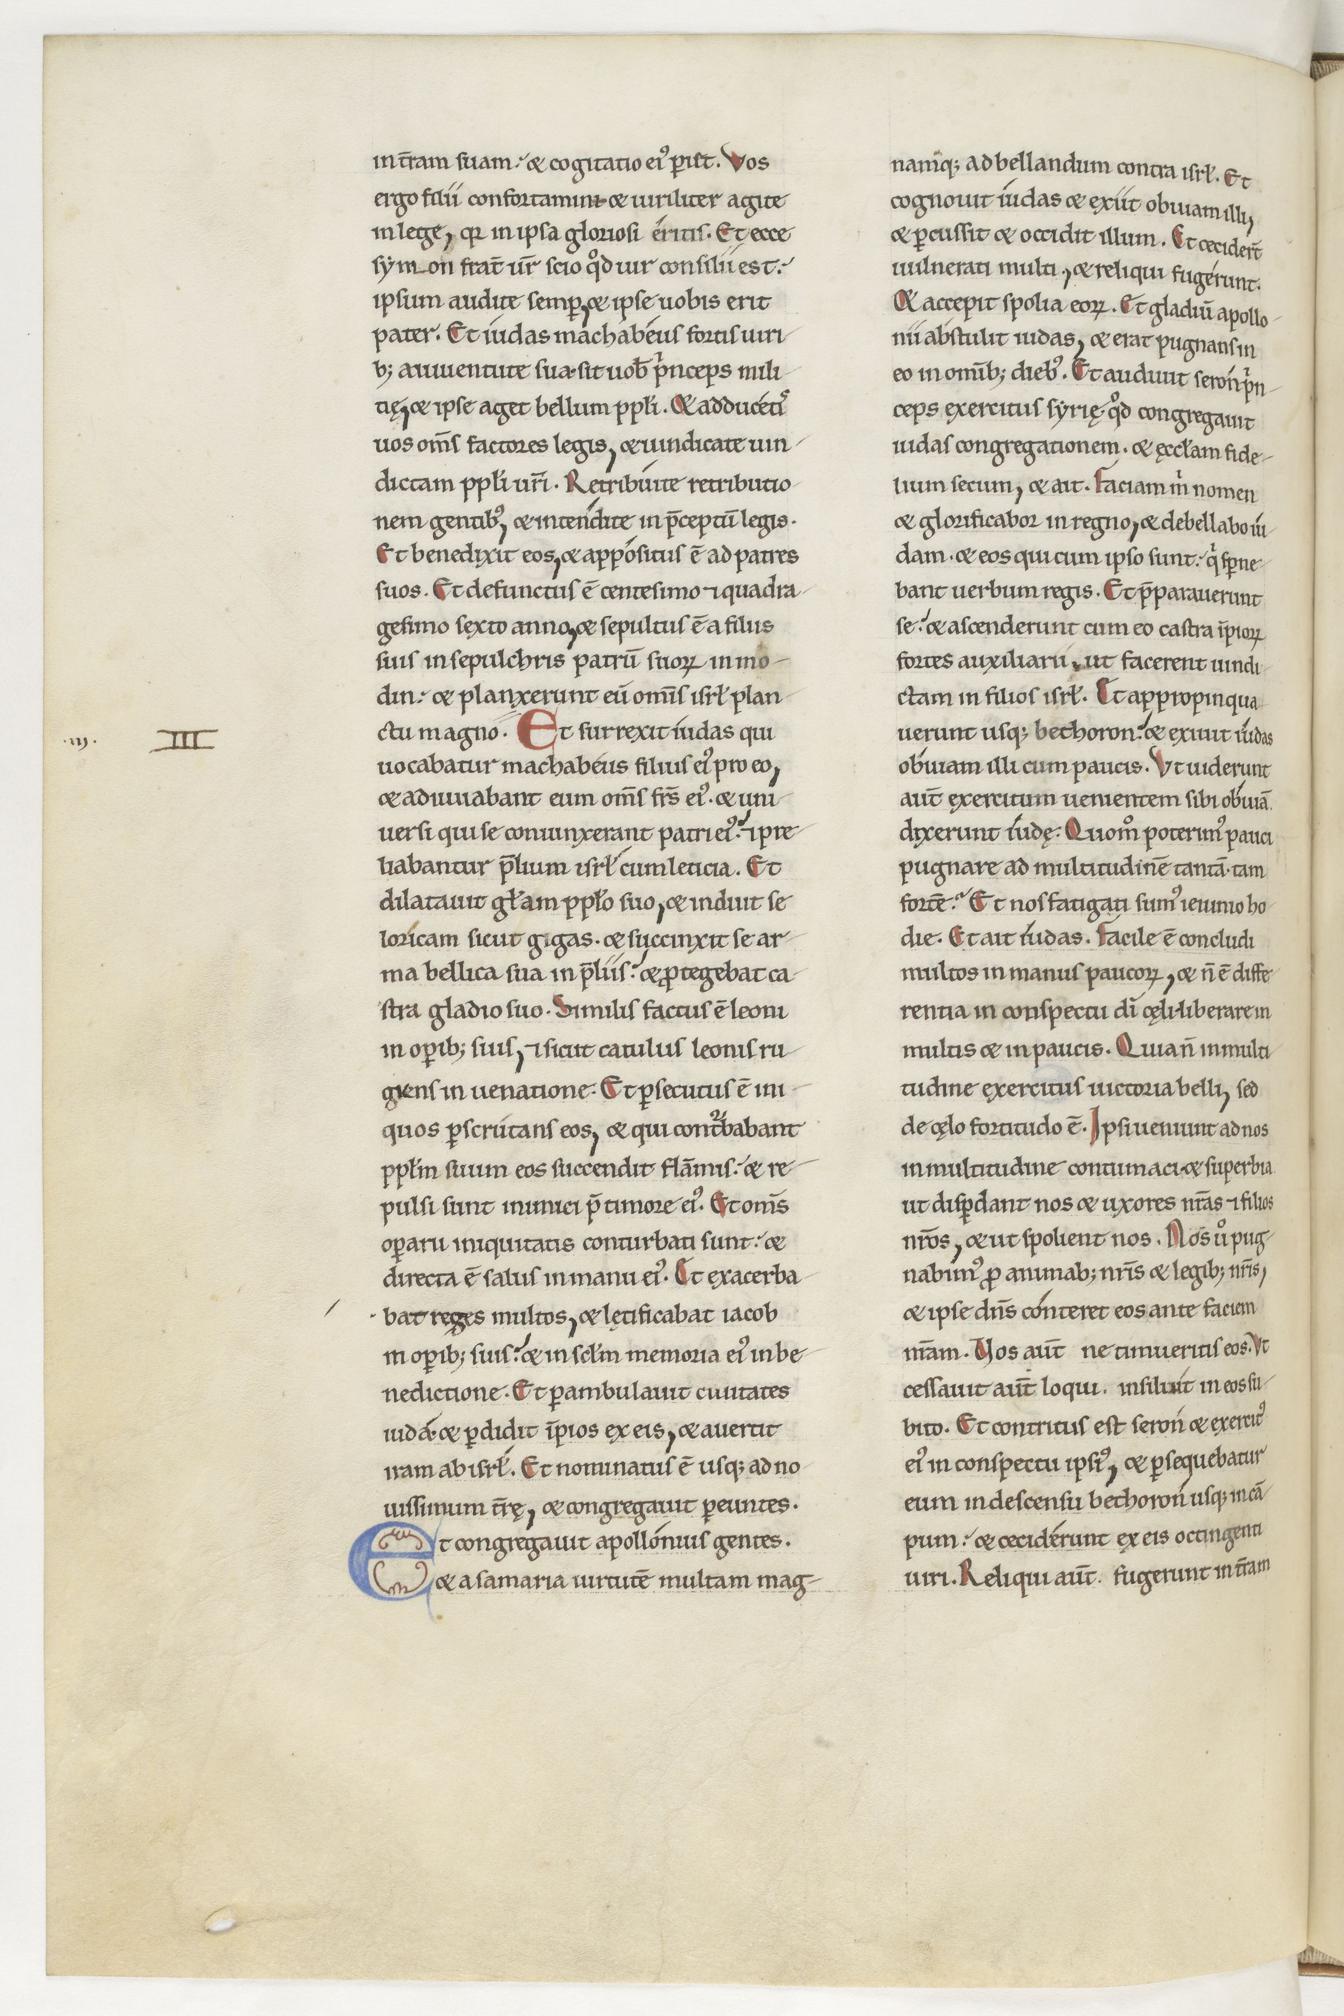 in t̄ram suam : & cogitatio ei᷒ ꝑist . Vos
ergo filii confortamini & uiriliter agite
in lege, qr in ipsa gloriosi eritis . Et ecce
symon frat̄ ur̄ scio qd̓ uir consilii est :
ipsum audite semꝑ, & ipse uobis erit
pater . Et iudas machabeus fortis uiri
b; a iuuentute sua . sit uob̄ pͥnceps mili
tię, & ipse aget bellum ppłi . & adducetis
uos om̄s factores legis, & uindicate uin
dictam ppłi ur̄i . Retribuite retributio
nem gentib᷒, & intendite in p̄ceptū legis .
Et benedixit eos, & appositus ē ad patres
suos . Et defunctus ē centesimo ⁊ quadra
gesimo sexto anno, & sepultus ē a filiis
suis in sepulchris patrū suoꝝ in mo
din : & planxerunt eū om̄is isrł plan
ctu magno . Et surrexit iudas qui
.iij. III
uocabatur machabeus filius ei᷒ pro eo,
& adiuuabant eum om̄s frs̄ ei᷒ . & uni
uersi qui se coniunxerant patri ei᷒ : ⁊ pre
liabantur p̄lium isrł cum leticia . Et
dilatauit głam ppło suo, & induit se
loricam sicut gigas . & succinxit se ar
ma bellica sua in p̄liis : & ꝓtegebat ca
stra gladio suo . Similis factus ē leoni
in oꝑib; suis, ⁊ sicut catulus leonis ru
giens in uenatione . Et ꝑsecutus ē ini
quos ꝑscrutans eos, & qui cont̓babant
ppłm suum eos succendit flām̄is : & re
pulsi sunt inimici p̄ timore ei᷒ . Et om̄s
oꝑarii iniquitatis conturbati sunt : &
directa ē salus in manu ei᷒ . Et exacerba
bat reges multos, & lętificabat iacob
in oꝑib; suis : & in scłm memoria ei᷒ in be
nedictione . Et ꝑambulauit ciuitates
iuda . & ꝑdidit īpios ex eis, & auertit
iram ab isrł . Et nominatus ē usq; ad no
uissimum t̄rę, & congregauit ꝑeuntes .
Et congregauit apollonius gentes .
& a samaria uirtutē multam mag
namq; ad bellandum contra isrł . Et
cognouit iudas & exiit obuiam illi,
& ꝑcussit & occidit illum . Et cecider̄t
uulnerati multi, & reliqui fugerunt .
& accepit spolia eoꝝ . Et gladiū apollo
nii abstulit iudas, & erat pugnans in
eo in omīb; dieb᷒ . Et audiuit seron pͥn
ceps exercitus syrię . qd̓ congregauit
iudas congregationem . & ęccłam fide
lium secum, & ait . Faciam m̓ nomen
& glorificabor in regno, & debellabo iu
dam . & eos qui cum ipso sunt : qͥ sꝑne
bant uerbum regis . Et p̄parauerunt
se : & ascenderunt cum eo castra īpioꝝ
fortes auxiliarii, ut facerent uindi
ctam in filios isrł . Et appropinqua
uerunt usq; bethoron : & exiuit iudas
obuiam illi cum paucis . Vt uiderunt
aut̄ exercitum uenientem sibi obuiā .
dixerunt iudę : Quom̊ poterim᷒ pauci
pugnare ad multitudinē tantā . tam
fortē : Et nos fatigati sum᷒ ieiunio ho
die . Et ait iudas . Facile ē concludi
multos in manus paucoꝝ, & n̄ ē diffe
rentia in conspectu dī cęli liberare in
multis & in paucis . Quia n̄ in multi
tudine exercitus uictoria belli, sed
de cęlo fortitudo ē . Ipsi ueniunt ad nos
in multitudine contumaci & superbia
ut disꝑdant nos & uxores nr̄as ⁊ filios
nr̄os, & ut spolient nos . Nos ů pug
nabim᷒ ꝓ animab; nr̄is & legib; nr̄is,
& ipse dn̄s conteret eos ante faciem
nr̄am . Vos aut̄ ne timueritis eos . Vt
cessauit aut̄ loqui . insiliuit in eos su
bito . Et contritus est seron & exercit᷒
ei᷒ in conspectu ipsi᷒, & ꝑsequebatur
eum in descensu bethoron usq; in cā
pum : & ceciderunt ex eis octingenti
uiri . Reliqui aut̄ . fugerunt in t̄ram